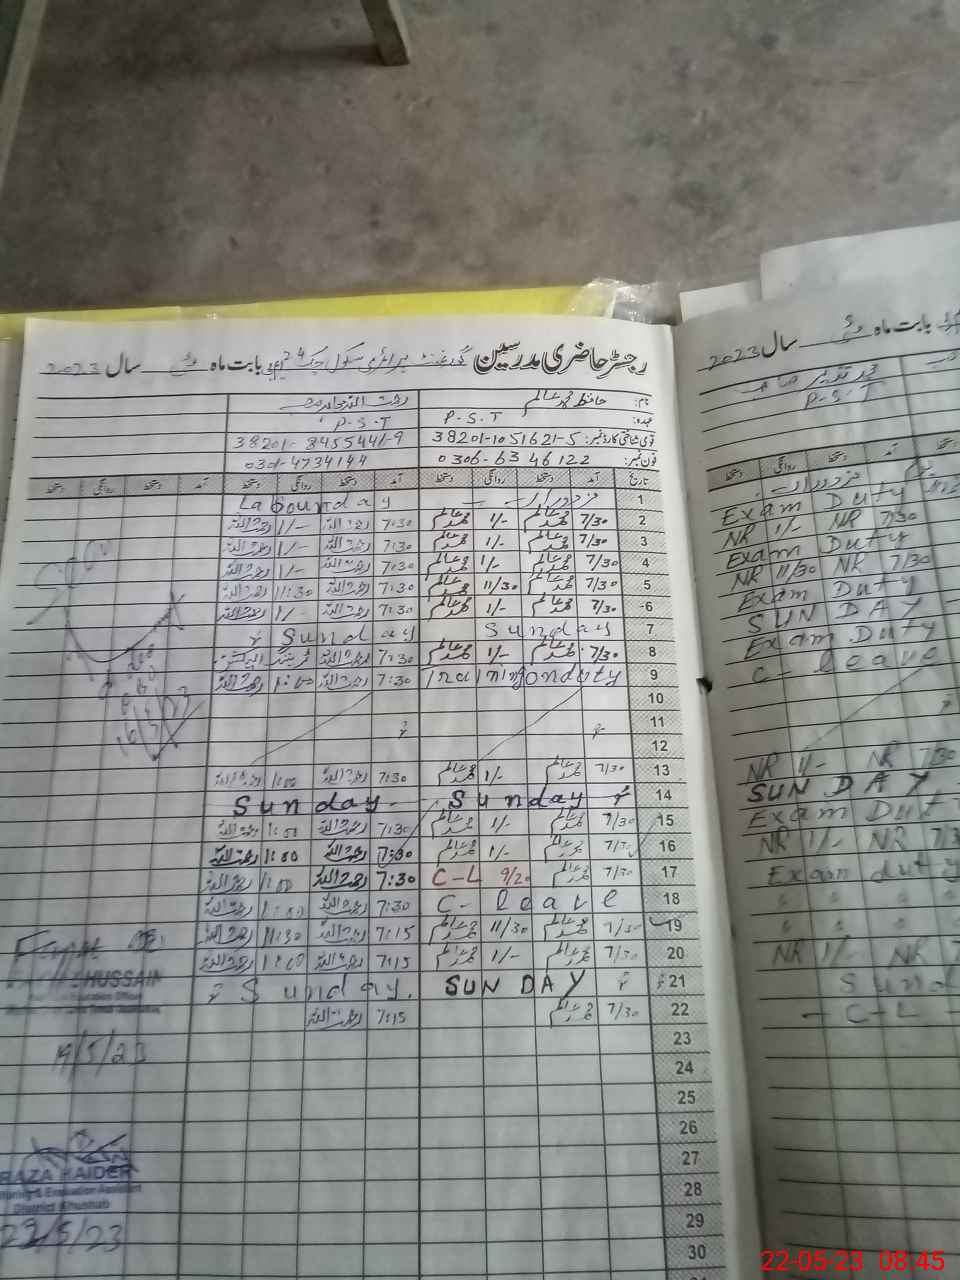 رجسٹر حاضری مدرسین گورنمنٹ پرائمری سکول چک 24 بابت ماہ مئی سال 2023
نام: حافظ محمد عالم
عہدہ: P.S.T P.S.T
قومی شناختی کارڈ نمبر: 38201-1051621-5 38201-8455441-9
فون نمبر: 0306-6346122 0301-4734144
تاریخ آمد دستخط روانگی دستخط آمد دستخط روانگی دستخط آمد دستخط روانگی دستخط
1 La bounday
2 7/30 محمد عالم 1/- محمد عالم 7:30 رحمت اللہ 1/- رحمت اللہ
3 7/30 محمد عالم 1/- محمد عالم 7:30 رحمت اللہ 1/- رحمت اللہ
4 7/30 محمد عالم 1/- محمد عالم 7:30 رحمت اللہ 1/- رحمت اللہ
5 7/30 محمد عالم 11/30 محمد عالم 7:30 رحمت اللہ 11:30 رحمت اللہ
6 7/30 محمد عالم 1/- محمد عالم 7:30 رحمت اللہ 1/- رحمت اللہ
7 Sunday Sunday
8 7/30 محمد عالم 1/- محمد عالم 7:30 رحمت اللہ
9 Training on duty 7:30 رحمت اللہ 1:00 رحمت اللہ
10
11
12
13 7/30 محمد عالم 1/- محمد عالم 7:30 رحمت اللہ 1:00 رحمت اللہ
14 Sunday Sunday
15 7/30 محمد عالم 1/- محمد عالم 7:30 رحمت اللہ 1:00 رحمت اللہ
16 7/30 محمد عالم 1/- محمد عالم 7:30 رحمت اللہ 1:00 رحمت اللہ
17 7/30 محمد عالم 9/20 C-L 7:30 رحمت اللہ 1:00 رحمت اللہ
18 C-leave 7:30 رحمت اللہ 1:00 رحمت اللہ
19 7/30 محمد عالم 11/30 محمد عالم 7:15 رحمت اللہ 11:30 رحمت اللہ
20 7/30 محمد عالم 1/- محمد عالم 7:15 رحمت اللہ 1:00 رحمت اللہ
21 SUNDAY Sunday.
22 7/30 محمد عالم 7:15 رحمت اللہ
23
24
25
26
27
28
29
30
HUSSAIN
19/5/23
RAZA HAIDER
Evaluation Assistant
District Khushab
22/5/23
بابت ماہ مئی سال 2023
P.S.T
دستخط روانگی دستخط
Exam Duty
NR 1/- NR 7/30
Exam Duty
NR 11/30 NR 7/30
Exam Duty
SUNDAY
Exam Duty
C-leave
NR 1/- NR 7/30
SUNDAY
Exam Duty
NR 1/- NR 7/30
Exam duty
NR 1/- NR 7/
Sund
- C-L -
22-05-23 08:45